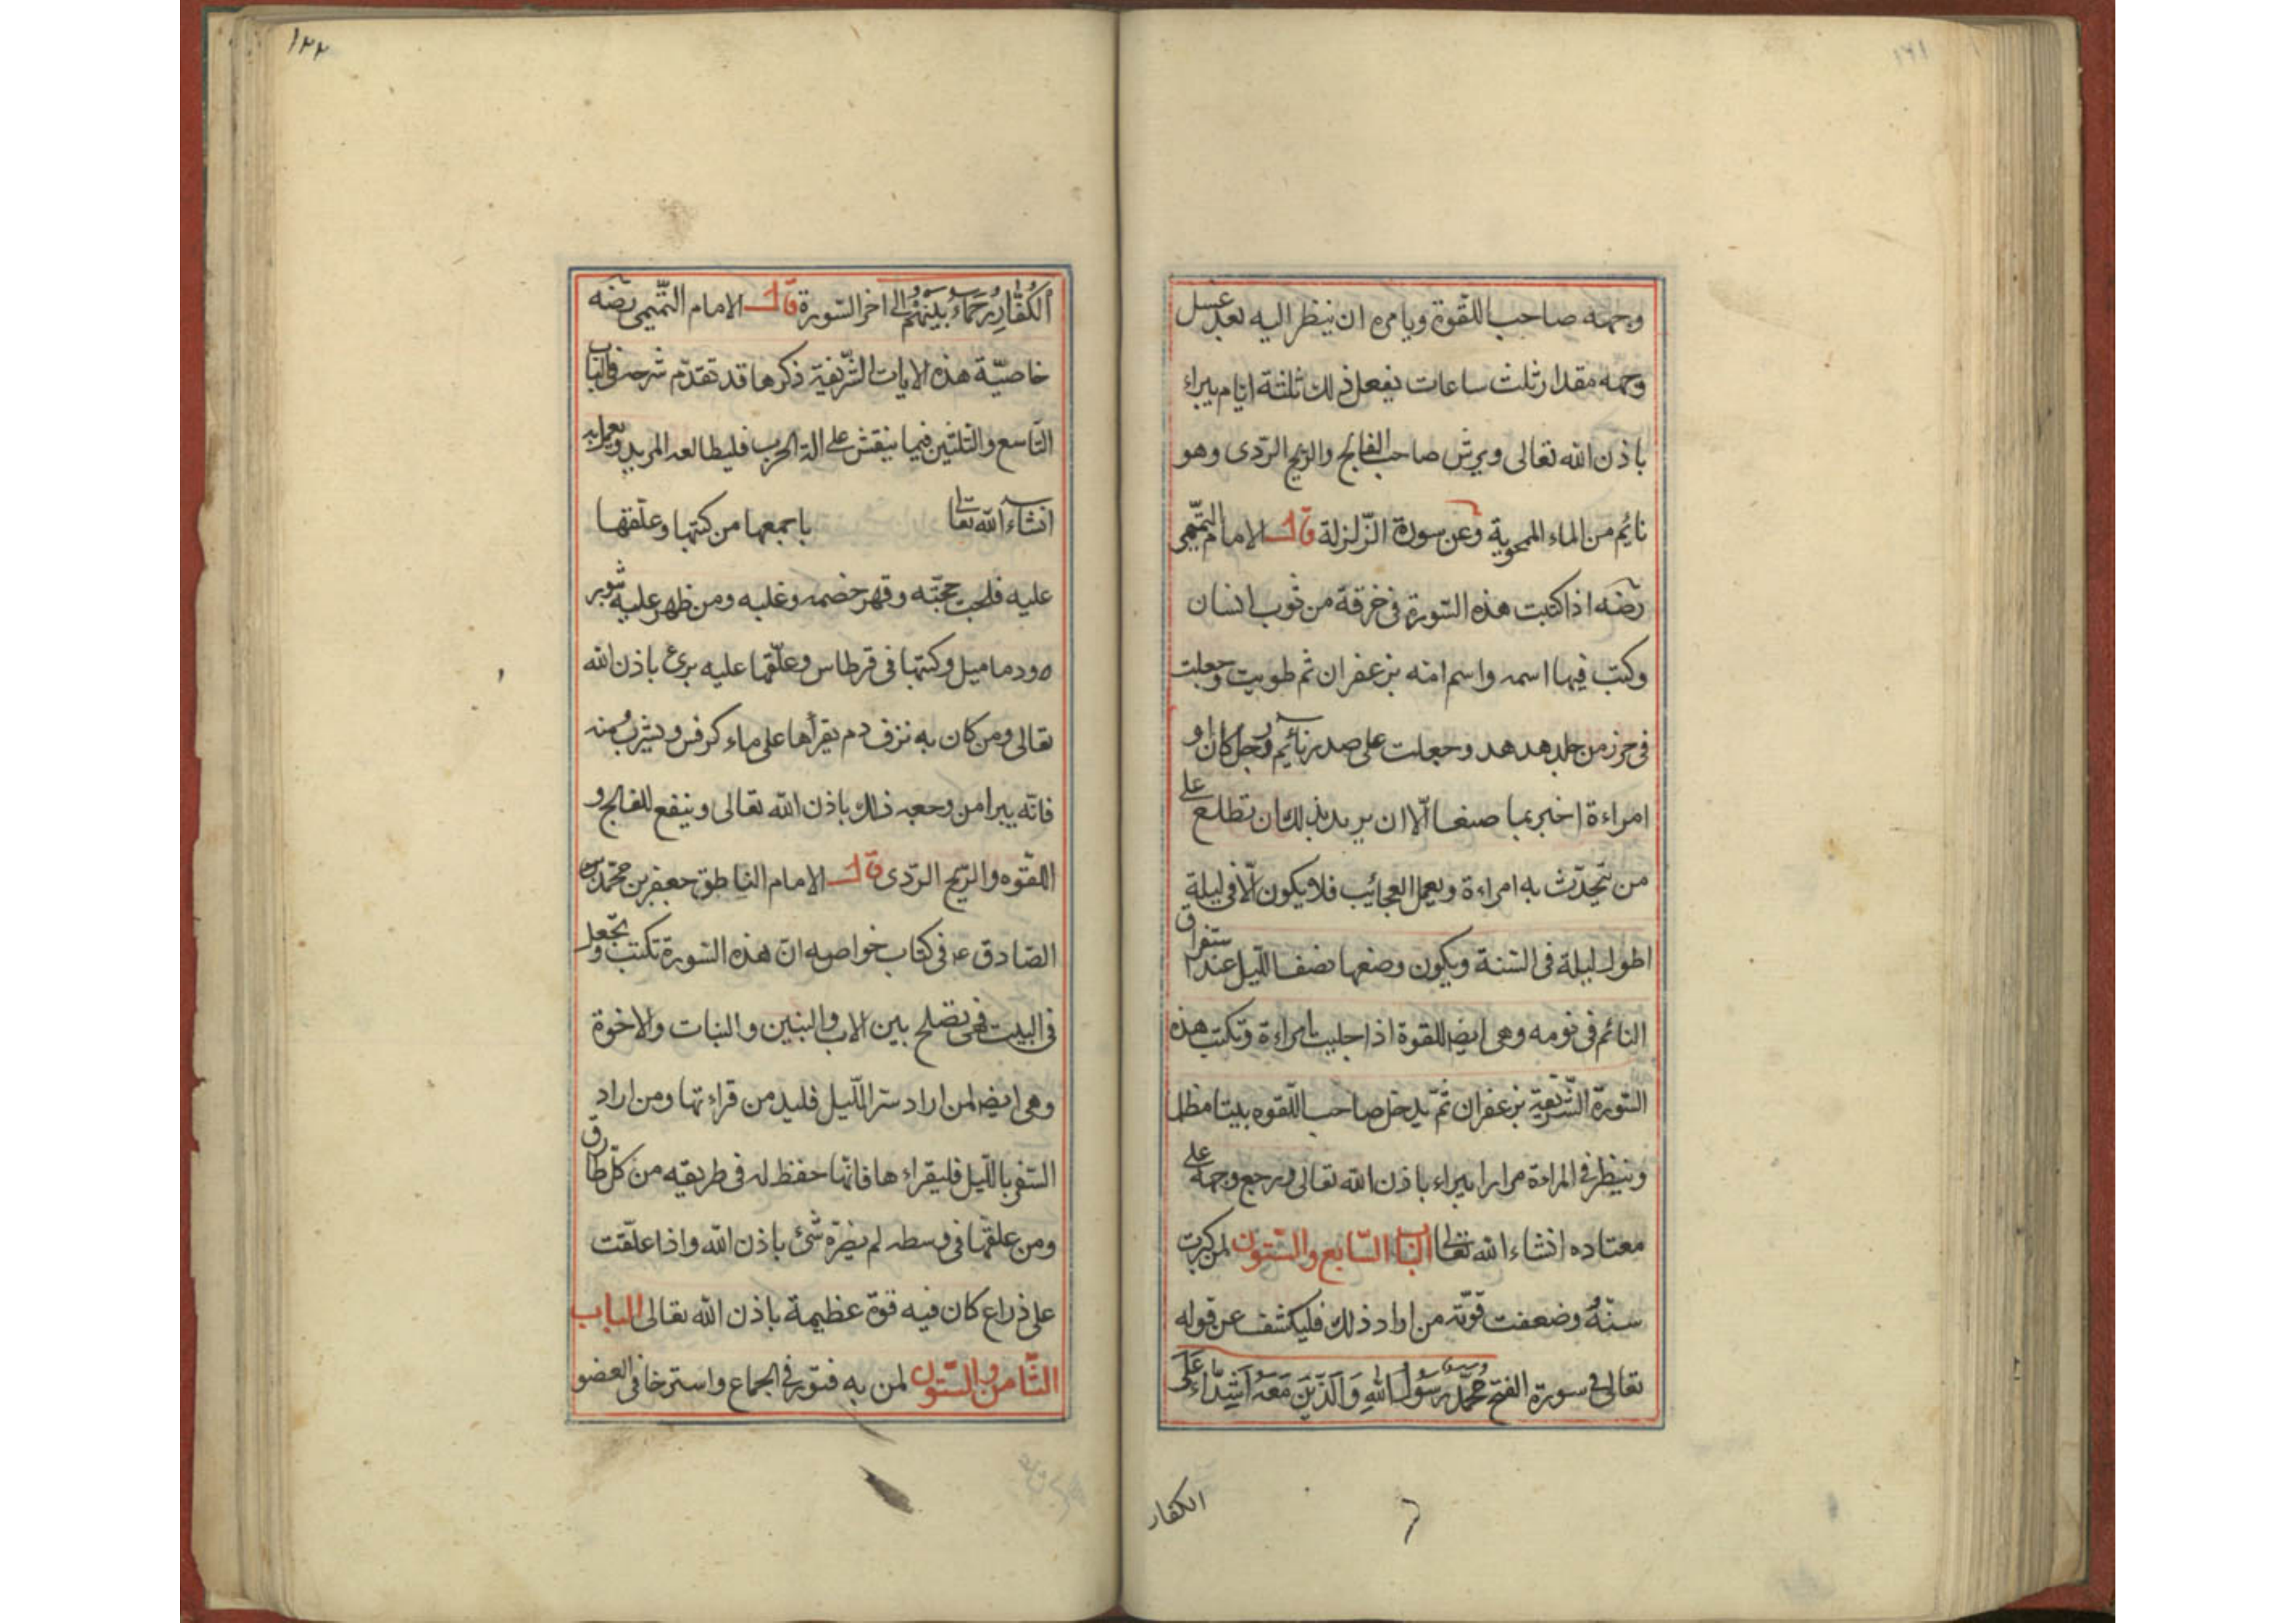 وجهه صاحب اللقوة ويامره ان ينظر اليه بعد غسل
وجهه مقدار ثلث ساعات يفعل ذلك ثلثة ايام يبراء
باذن الله تعالى ويرش صاحب الفالج والريح الردى وهو
نايم من الماء الممحوية وعن سورة الزلزلة قال الامام التميمى
رضه اذا كتبت هذه السورة فى خرقة من ثوب انسان
وكتب فيها اسمه واسم امه بزعفران ثم طويت وجعلت
فى حرز من جلد هدهد وجعلت على صدر نائم رجل كان او
امراءة اخبر بما صنعا الا ان يريد بذلك ان تطلع على
من تتحدث به امراءة ويعمل العجائب فلا يكون الا فى ليلة
اطول ليلة فى السنة ويكون وضعها نصف الليل عند استغراق
النائم فى نومه وهى ايضا للقوة اذا جليت امراءة وتكتب هذه
السورة الشريفة بزعفران ثم يدخل صاحب اللقوه بيتا مظلما
وينظر فى المراءة مرارا يبراء باذن الله تعالى ويرجع وجهه على
معتاده انشاء الله تعالى الباب السابع والستون لمن كبرت
سنه وضعفت قوته من اراد ذلك فليكشف عن قوله
تعالى فى سورة الفتح محمد رسول الله والذين معه اشداء على
الكفار
١٢٢
الكفار رحماء بينهم الى اخر السورة قال الامام التميمى رضه
خاصية هذه الايات الشريفة ذكرها قد تقدم شرحه فى الباب
التاسع والثلثين فيما ينقش على الة الحرب فليطالعه المريد ويعمل به
انشاء الله تعالى باجمعها من كتبها وعلقها
عليه فلجت حجته وقهر خصمه وغلبه ومن ظهر عليه ثوير
ه ودماميل وكتبها فى قرطاس وعلقها عليه برئ باذن الله
تعالى ومن كان به نزف دم يقرأها على ماء كرفس ويشرب منه
فانه يبرا من وجعه ذلك باذن الله تعالى وينفع للفالج و
اللقوه والريح الردى قال الامام الناطق جعفر بن محمد
الصادق ع فى كتاب خواصه ان هذه السورة تكتب وتجعل
فى البيت فهى تصلح بين الاب والبنين والبنات والاخوة
وهى ايضا لمن اراد ستر الليل فليدمن قراءتها ومن اراد
السفر بالليل فليقراءها فانها حفظ له فى طريقه من كل طارق
ومن علقها فى وسطه لم يضره شئ باذن الله واذا علقت
على ذراع كان فيه قوة عظيمة باذن الله تعالى الباب
الثامن والستون لمن به فتور فى الجماع واسترخا فى العضو